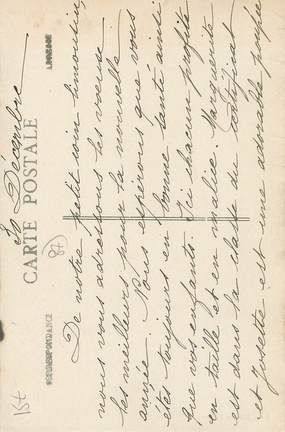 30 Décembre
CARTE POSTALE
CORRESPONDANCE
ADRESSE
(87)
15t
De notre petit coin limousin,
nous vous adressons les vœux
les meilleurs pour la nouvelle
année. Nous espérons que vous
êtes toujours en bonne santé ainsi
que vos enfants. Ici chacun profite
en taille et en malice. Marguerite
est dans la classe du
et Josette est une adorable poupée